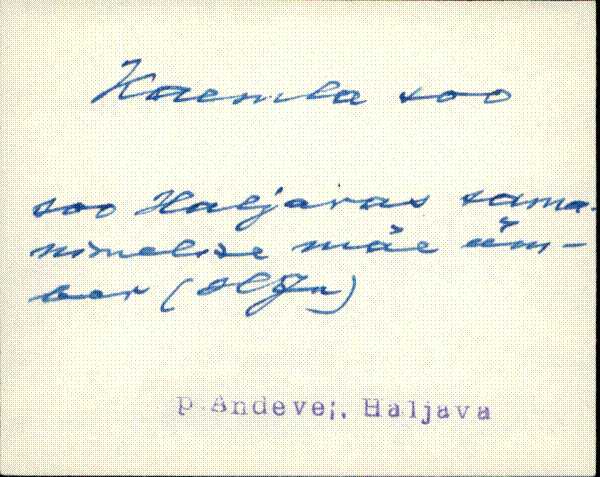 Kaemla soo
soo Haljavas sama-
nimelise mäe üm-
ber (
p. Andevei, Haljava